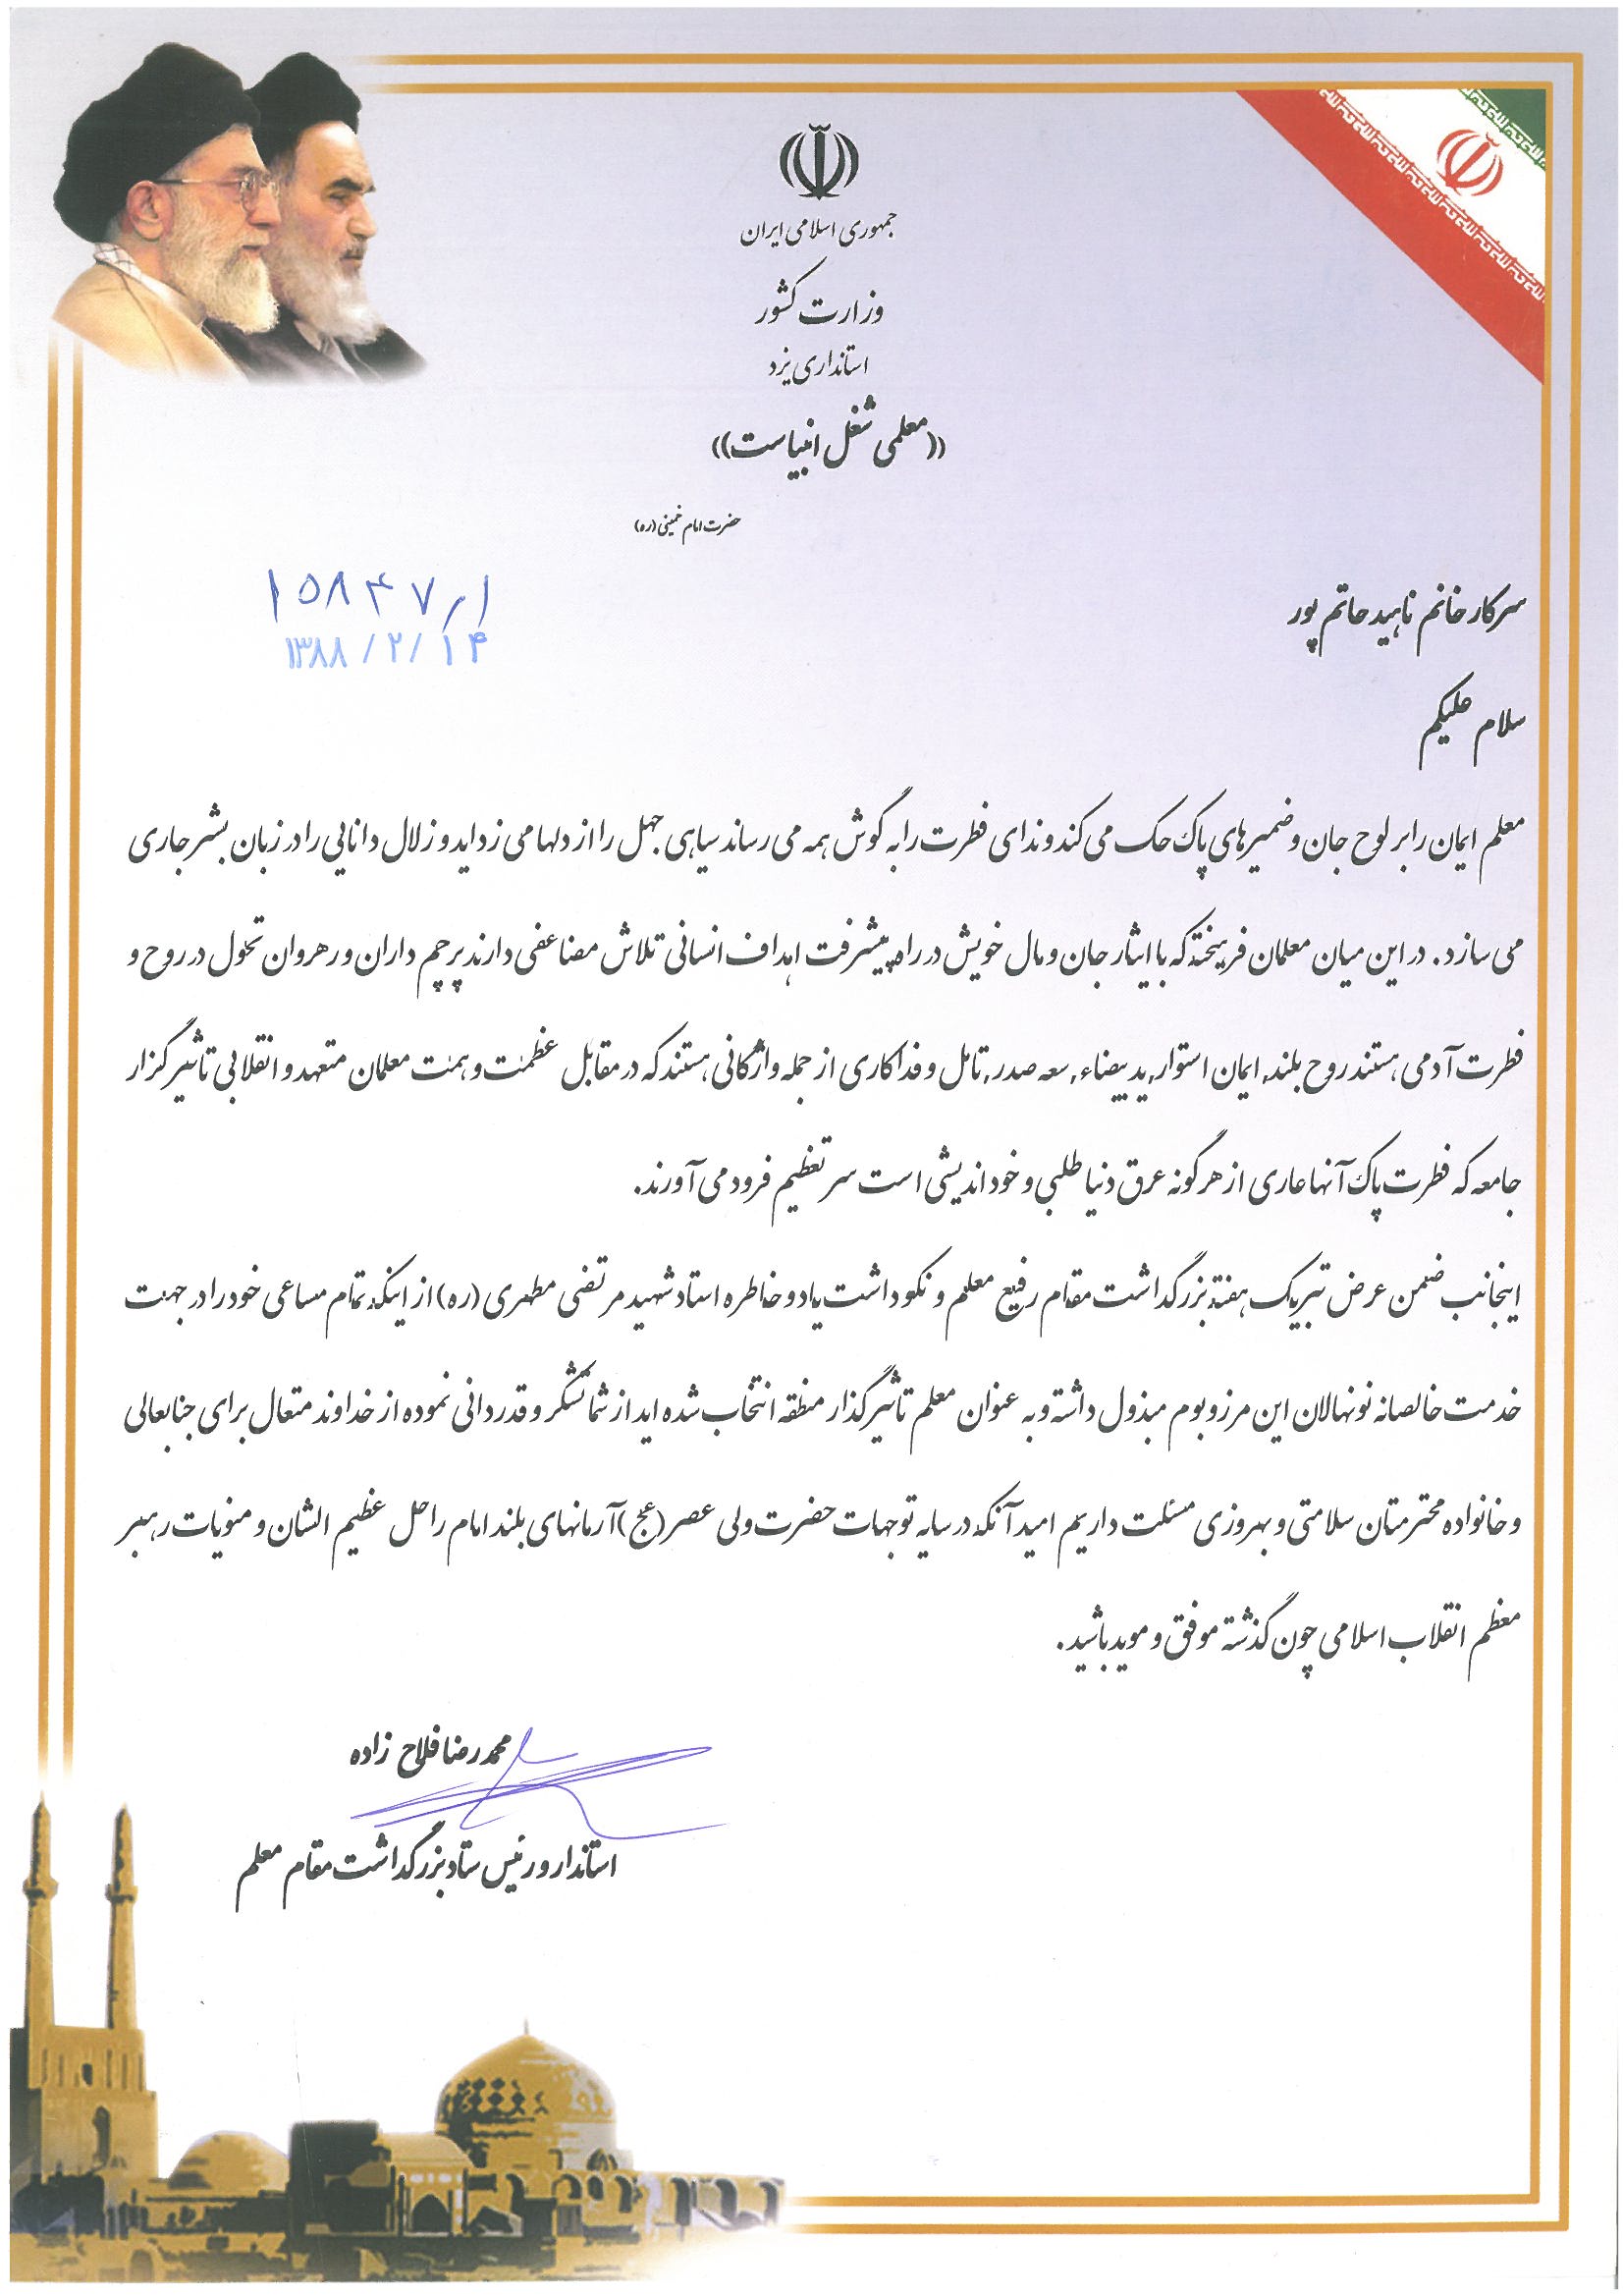 جمهوری اسلامی ایران
وزارت کشور
استانداری یزد
((معلمی شغل انبیاست))
حضرت امام خمینی (ره)
۱۵۸۴۷/۱
۱۳۸۸/۲/۱۴
سرکار خانم ناهید حاتم پور
سلام علیکم
معلم ایمان را بر لوح جان و ضمیرهای پاک حک می کند و ندای فطرت را به گوش همه می رساند سیاهی جهل را از دلها می زداید و زلال دانایی را در زبان بشر جاری
می سازد. در این میان معلمان فریخته که با ایثار جان و مال خویش در راه پیشرفت اهداف انسانی تلاش مضاعفی دارند پرچم داران و رهروان تحول در روح و
فطرت آدمی هستند روح بلند, ایمان استوار, ید بیضاء, سعه صدر, تامل و فداکاری از جمله واژگانی هستند که در مقابل عظمت و همت معلمان متعهد و انقلابی تاثیر گزار
جامعه که فطرت پاک آنها عاری از هر گونه عرق دنیا طلبی و خود اندیشی است سر تعظیم فرود می آورند.
اینجانب ضمن عرض تبریک هفته بزرگداشت مقام رفیع معلم و نکوداشت یاد و خاطره استاد شهید مرتضی مطهری (ره) از اینکه تمام مساعی خود را در جهت
خدمت خالصانه نونهالان این مرز و بوم مبذول داشته و به عنوان معلم تاثیر گذار منطقه انتخاب شده اید از شما تشکر و قدردانی نموده از خداوند متعال برای جنابعالی
و خانواده محترمتان سلامتی و بهروزی مسئلت داریم امید آنکه در سایه توجهات حضرت ولی عصر (عج) آرمانهای بلند امام راحل عظیم الشان و منویات رهبر
معظم انقلاب اسلامی چون گذشته موفق و موید باشید.
محمد رضا فلاح زاده
استاندار و رئیس ستاد بزرگداشت مقام معلم